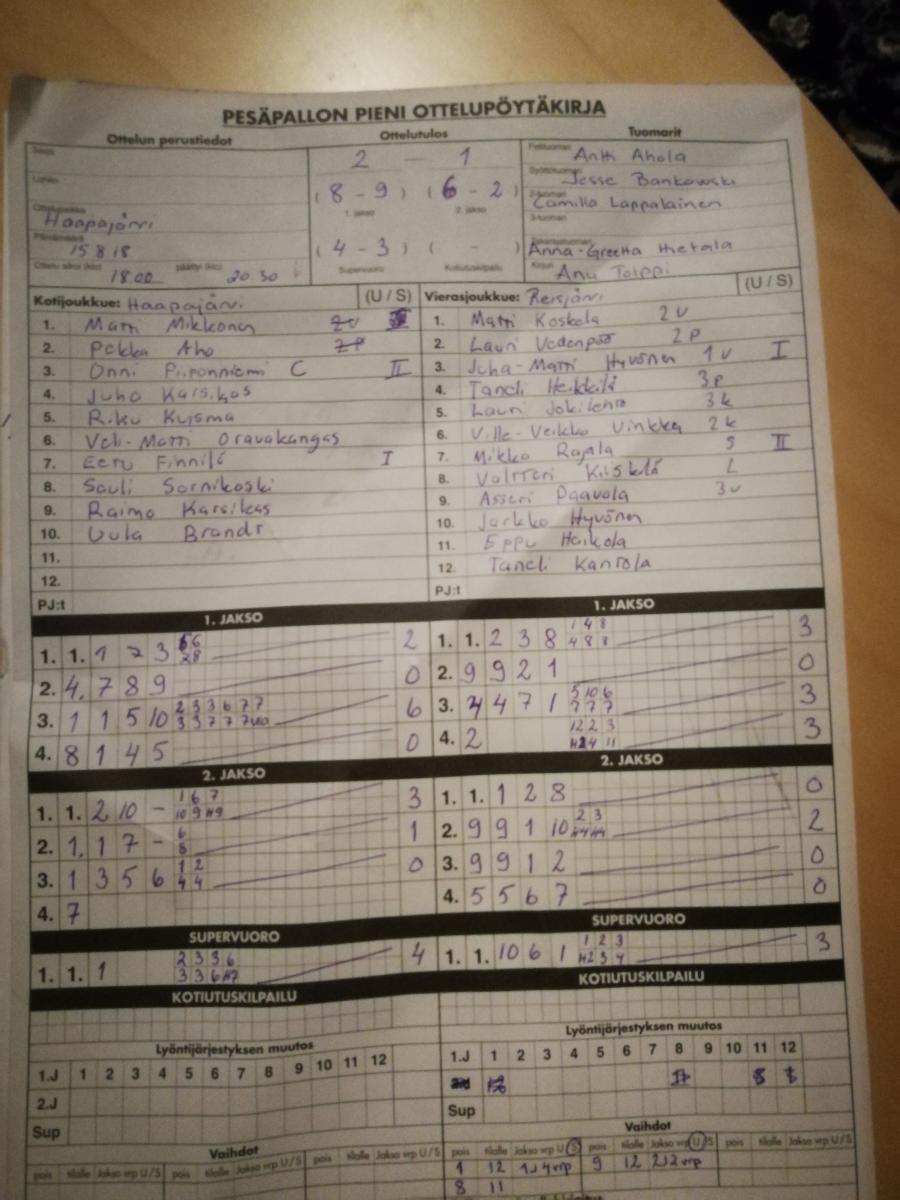 PESÄPALLON PIENI OTTELUPÖYTÄKIRJA
Ottelun perustiedot Ottelutulos Tuomarit
2 — 1
Antti Ahola
(8 - 9) (6 - 2)
1. jakso 2. jakso
Jesse Bankowski
Camilla Lappalainen
Haapajärvi
15 8 18
(4 - 3) ( - )
Supervuoro Kotiutuskilpailu
Anna-Greetta Hietala
Anu Tolppi
18.00 20.30
Kotijoukkue: Haapajärvi (U / S)
1. Matti Mikkonen 2u
2. Pekka Aho 2p
3. Onni Piiponniemi C II
4. Juho Karsikas
5. Riku Kuisma
6. Veli-Matti Oravakangas
7. Eetu Finnilä I
8. Sauli Sornikoski
9. Raimo Karsikas
10. Uula Brandt
11.
12.
PJ:t
Vierasjoukkue: Reisjärvi (U / S)
1. Matti Koskela 2u
2. Lauri Vedenpää 2p
3. Juha-Matti Hyvönen 1u I
4. Taneli Heikkilä 3p
5. Lauri Jokilehto 3k
6. Ville-Veikko Vinkka 2k
7. Mikko Rajala S II
8. Valtteri Kiiskilä L
9. Asseri Paavola 3u
10. Jarkko Hyvönen
11. Eppu Haikola
12. Taneli Kantola
PJ:t
1. JAKSO
1. 1. 1 2 3 2
2. 4. 7 8 9 0
3. 1 1 5 10 6
4. 8 1 4 5 0
1. JAKSO
1. 1. 2 3 8 1 4 8 3
4 8 8
2. 9 9 2 1 0
3. 4 4 7 1 5 10 6 3
7 7 7
4. 2 12 2 3 3
2. JAKSO
1. 1. 2 10 - 1 6 7 3
2. 1. 1 7 - 6 1
8
3. 1 3 5 6 1 2 0
4 4
4. 7
2. JAKSO
1. 1. 1 2 8 0
2. 9 9 1 10 2 3 2
3. 9 9 1 2 0
4. 5 5 6 7 0
SUPERVUORO
1. 1. 1 2 3 3 6 4
SUPERVUORO
1. 1. 10 6 1 1 2 3 3
KOTIUTUSKILPAILU
KOTIUTUSKILPAILU
Lyöntijärjestyksen muutos
1.J 1 2 3 4 5 6 7 8 9 10 11 12
2.J
Sup
Lyöntijärjestyksen muutos
1.J 1 2 3 4 5 6 7 8 9 10 11 12
Sup
Vaihdot
pois tilalle Jakso vrp U/S pois tilalle Jakso vrp U/S pois tilalle Jakso vrp U/S
Vaihdot
pois tilalle Jakso vrp U/S pois tilalle Jakso vrp U/S pois tilalle Jakso vrp U/S
1 12 1J4vrp 9 12 2J2vrp
8 11